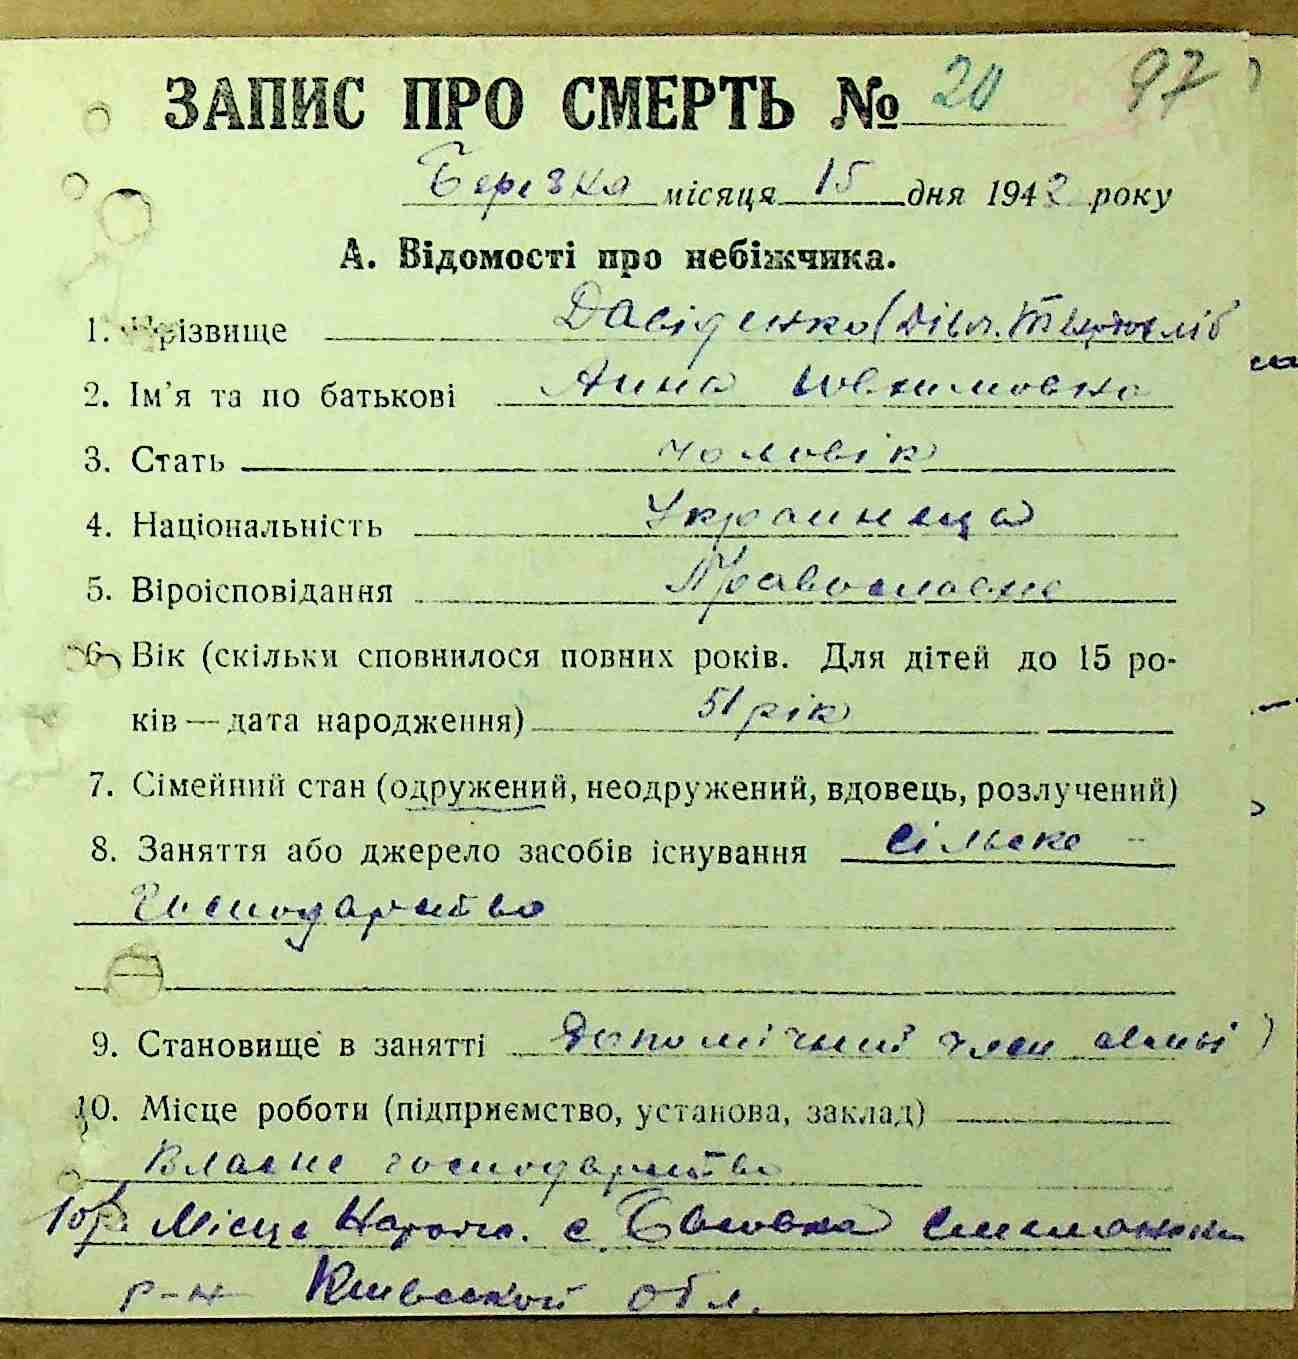 ЗАПИС ПРО СМЕРТЬ № 20 97
Березня місяця 15 дня 1942 року
А. Відомості про небіжчика.
1. Прізвище Давіденко (дівч.
2. Ім'я та по батькові Анна Овхимовна
3. Стать чоловік
4. Національність Украинеца
5. Віроісповідання Православне
6. Вік (скільки сповнилося повних років. Для дітей до 15 ро-
ків — дата народження) 51 рік
7. Сімейний стан (одружений, неодружений, вдовець, розлучений)
8. Заняття або джерело засобів існування Сільске -
Господарство
9. Становище в занятті Допомічний член сімьі
10. Місце роботи (підприємство, установа, заклад)
Власне господарство
Місце народ. с.
р-н Киевской обл.